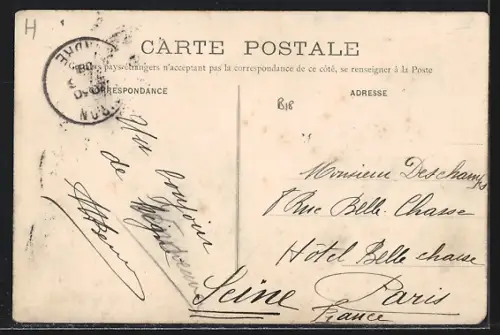 H
CARTE POSTALE
Certains pays étrangers n'acceptant pas la correspondance de ce côté, se renseigner à la Poste
CORRESPONDANCE
ADRESSE
B18
Un bonjour
de
Monsieur Deschamps
8 Rue Belle-Chasse
Hôtel Belle chasse
Seine Paris
France